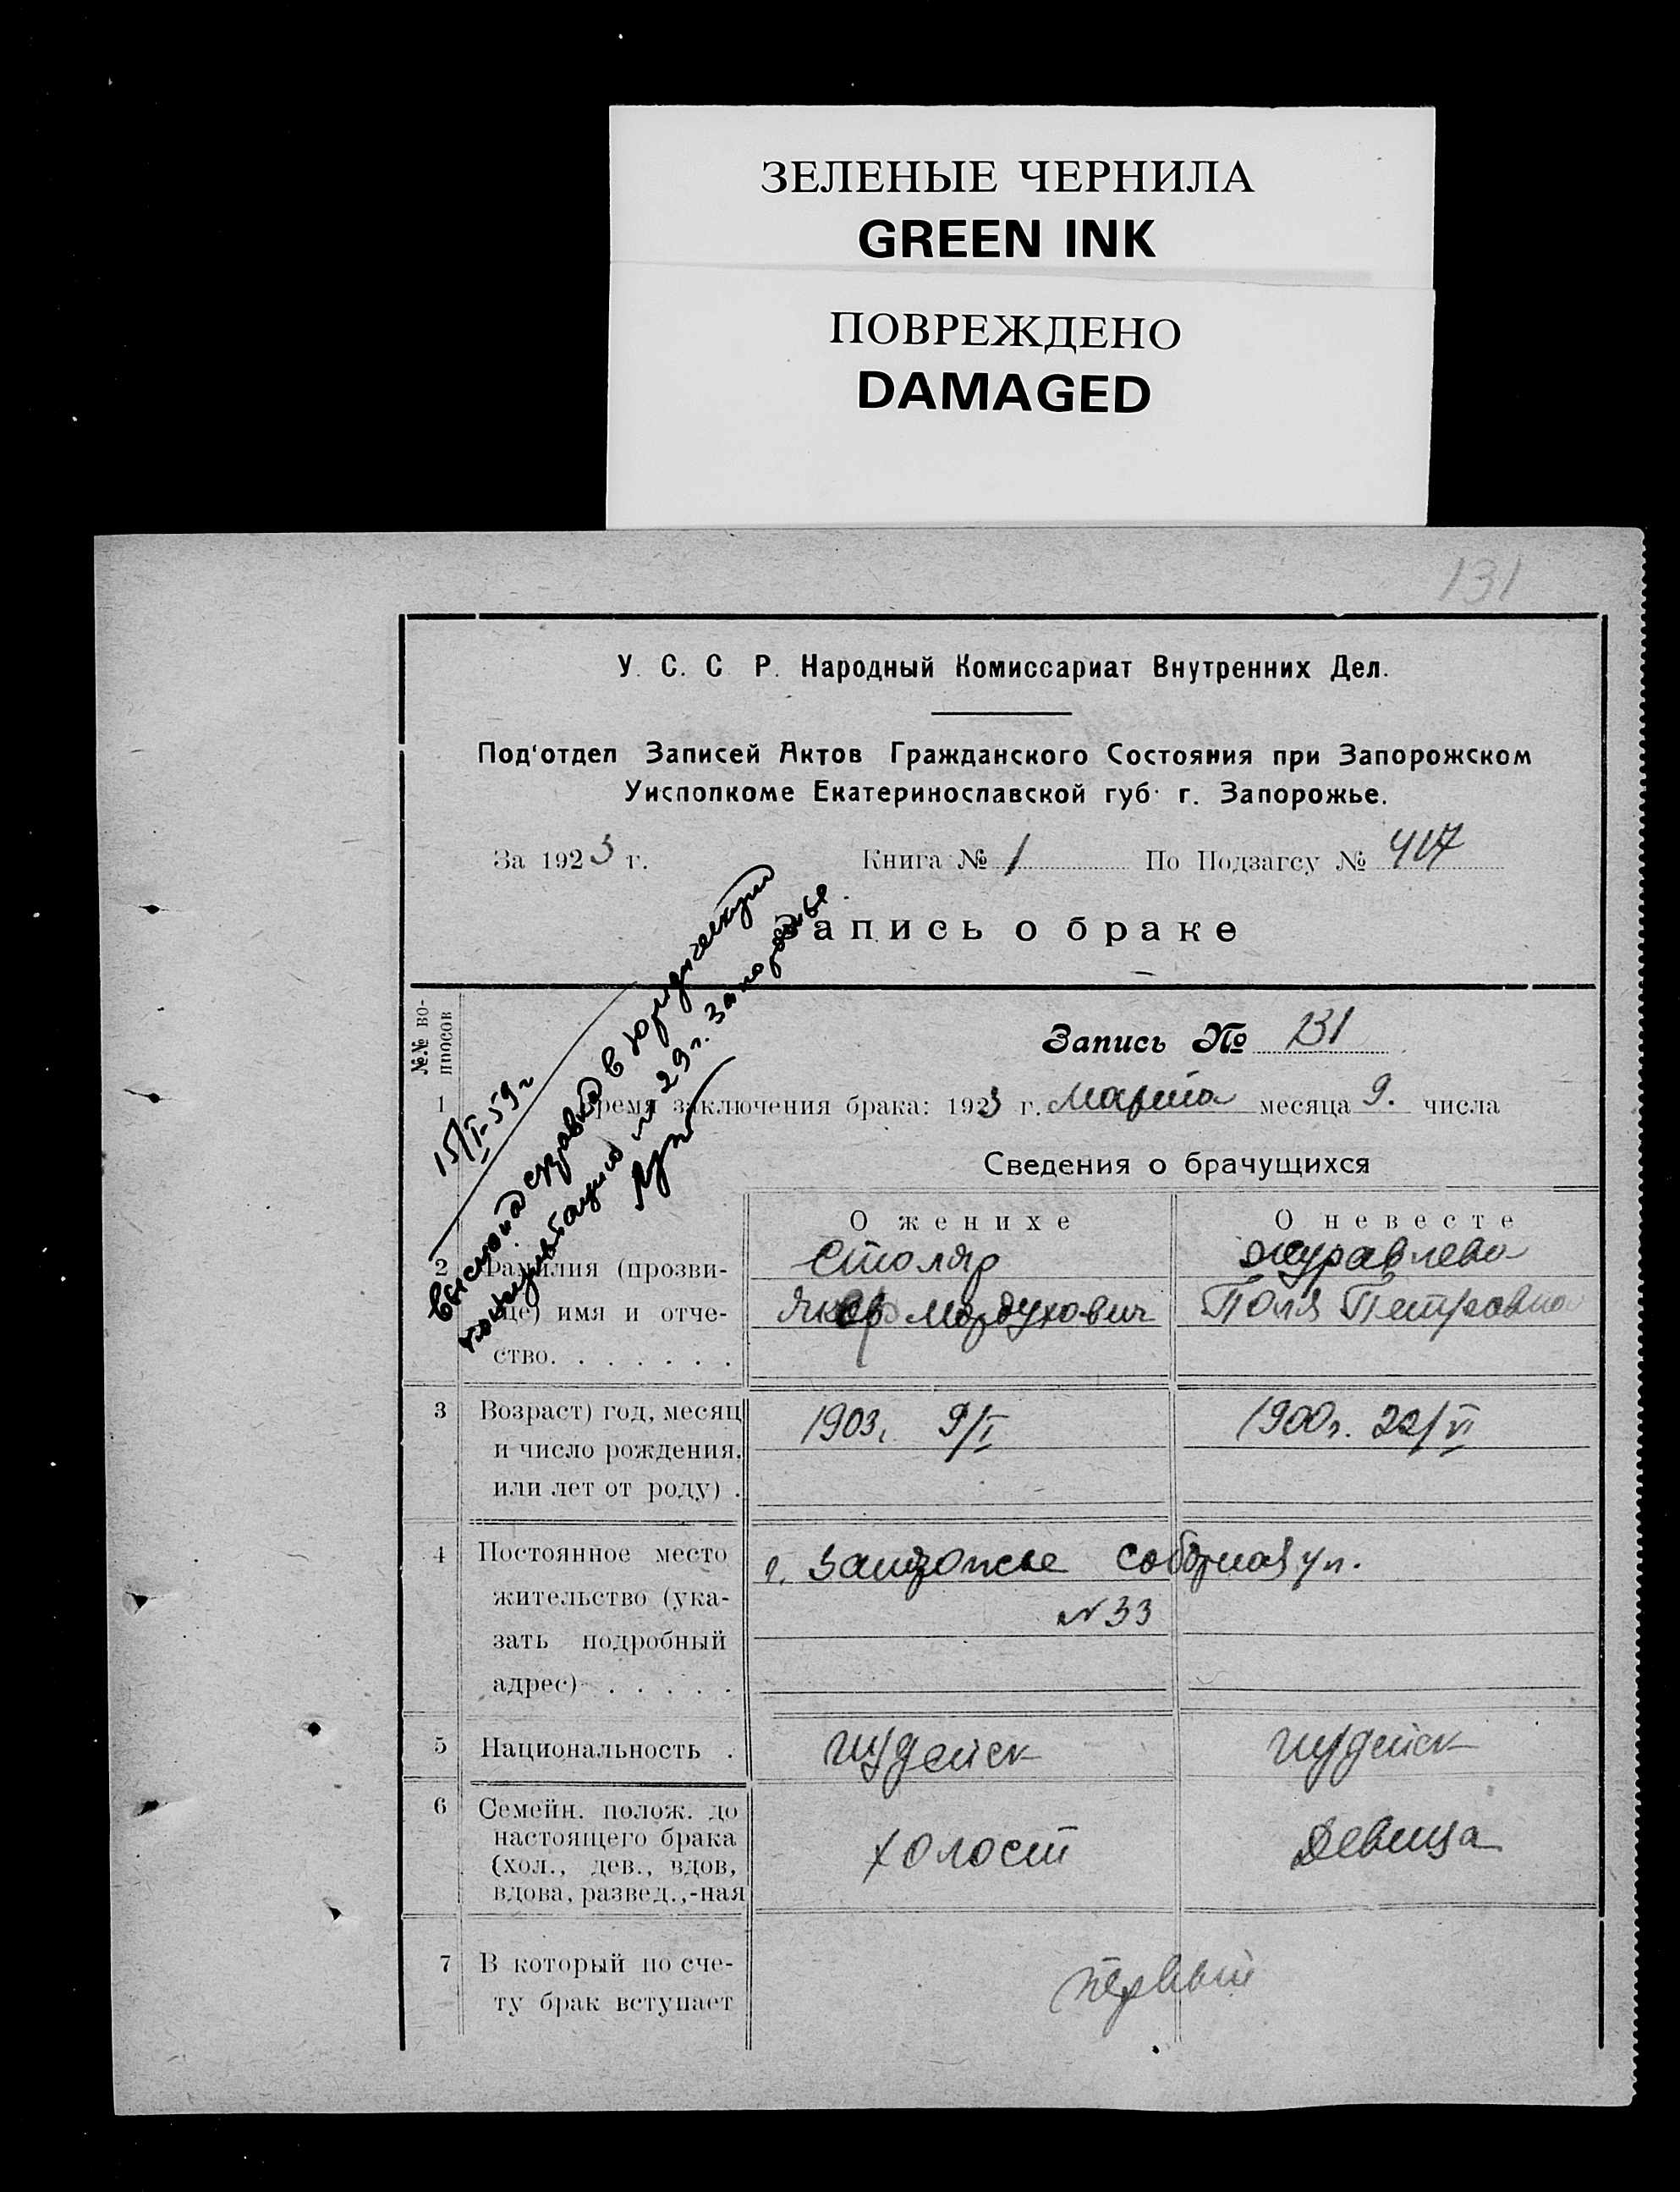 ЗЕЛЕНЫЕ ЧЕРНИЛА
GREEN INK
ПОВРЕЖДЕНО
DAMAGED
131
У. С. С Р. Народный Комиссариат Внутренних Дел.
Под'отдел Записей Актов Гражданского Состояния при Запорожском
Уисполкоме Екатеринославской губ. г. Запорожье.
За 1923 г. Книга № 1 По Подзагсу № 417
Запись о браке
№№ во-
просов
Запись № 131
15/I-59 г
Выслана справка в Юридическую
консультацию № 29 г. Запорожья.
1 Время заключения брака: 1923 г. Марта месяца 9. числа
Сведения о брачущихся
О женихе О невесте
2 Фамилия (прозви- Столяр Журавлева
ще) имя и отче- Яков Мордухович Поля Петровна
ство. . . . . . .
3 Возраст) год, месяц 1903г. 9/I 1900г. 22/VI
и число рождения.
или лет от роду) .
4 Постоянное место г. Запорожье Соборная ул.
жительство (ука- №33
зать подробный
адрес) . . . . .
5 Национальность . Иудейск Иудейск
6 Семейн. полож. до
настоящего брака холост Девица
(хол., дев., вдов,
вдова, развед.,-ная
7 В который по сче- первый
ту брак вступает